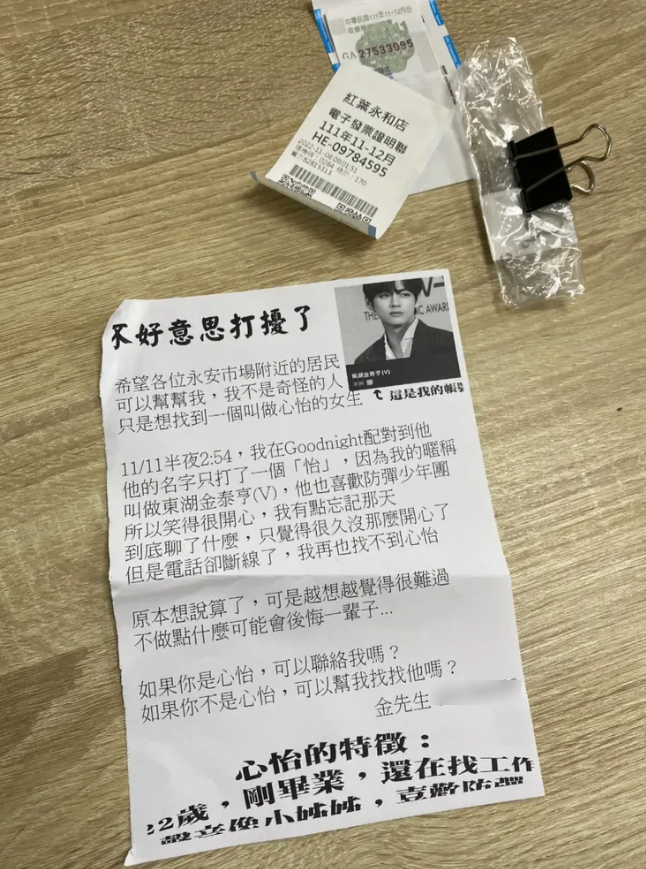 中華民國111年11-12月份
27533095
紅葉永和店
電子發票證明聯
111年11-12月
HE-09784595
2022-11-08 09:01:51
不好意思打擾了
東湖金泰亨(V)
↑ 這是我的帳
希望各位永安市場附近的居民
可以幫幫我，我不是奇怪的人
只是想找到一個叫做心怡的女生
11/11半夜2:54，我在Goodnight配對到他
他的名字只打了一個「怡」，因為我的暱稱
叫做東湖金泰亨(V)，他也喜歡防彈少年團
所以笑得很開心，我有點忘記那天
到底聊了什麼，只覺得很久沒那麼開心了
但是電話卻斷線了，我再也找不到心怡
原本想說算了，可是越想越覺得很難過
不做點什麼可能會後悔一輩子...
如果你是心怡，可以聯絡我嗎？
如果你不是心怡，可以幫我找找他嗎？
金先生
心怡的特徵：
22歲，剛畢業，還在找工作
聲音像小姊姊，喜歡防彈